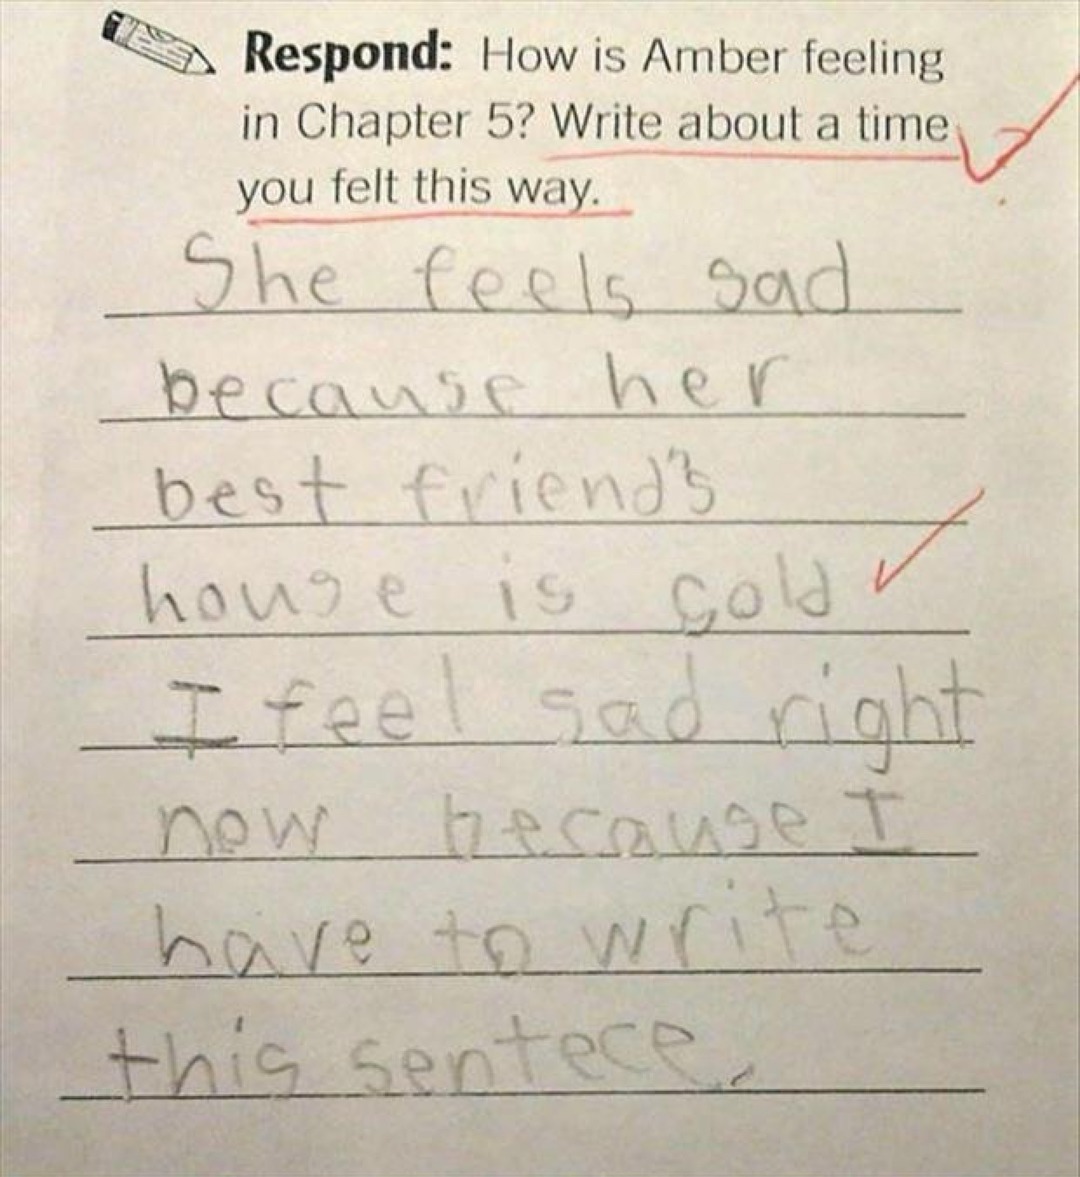 Respond: How is Amber feeling
in Chapter 5? Write about a time
you felt this way.
She feels sad
because her
best friend's
house is sold
I feel sad right
now because I
have to write
this sentece.